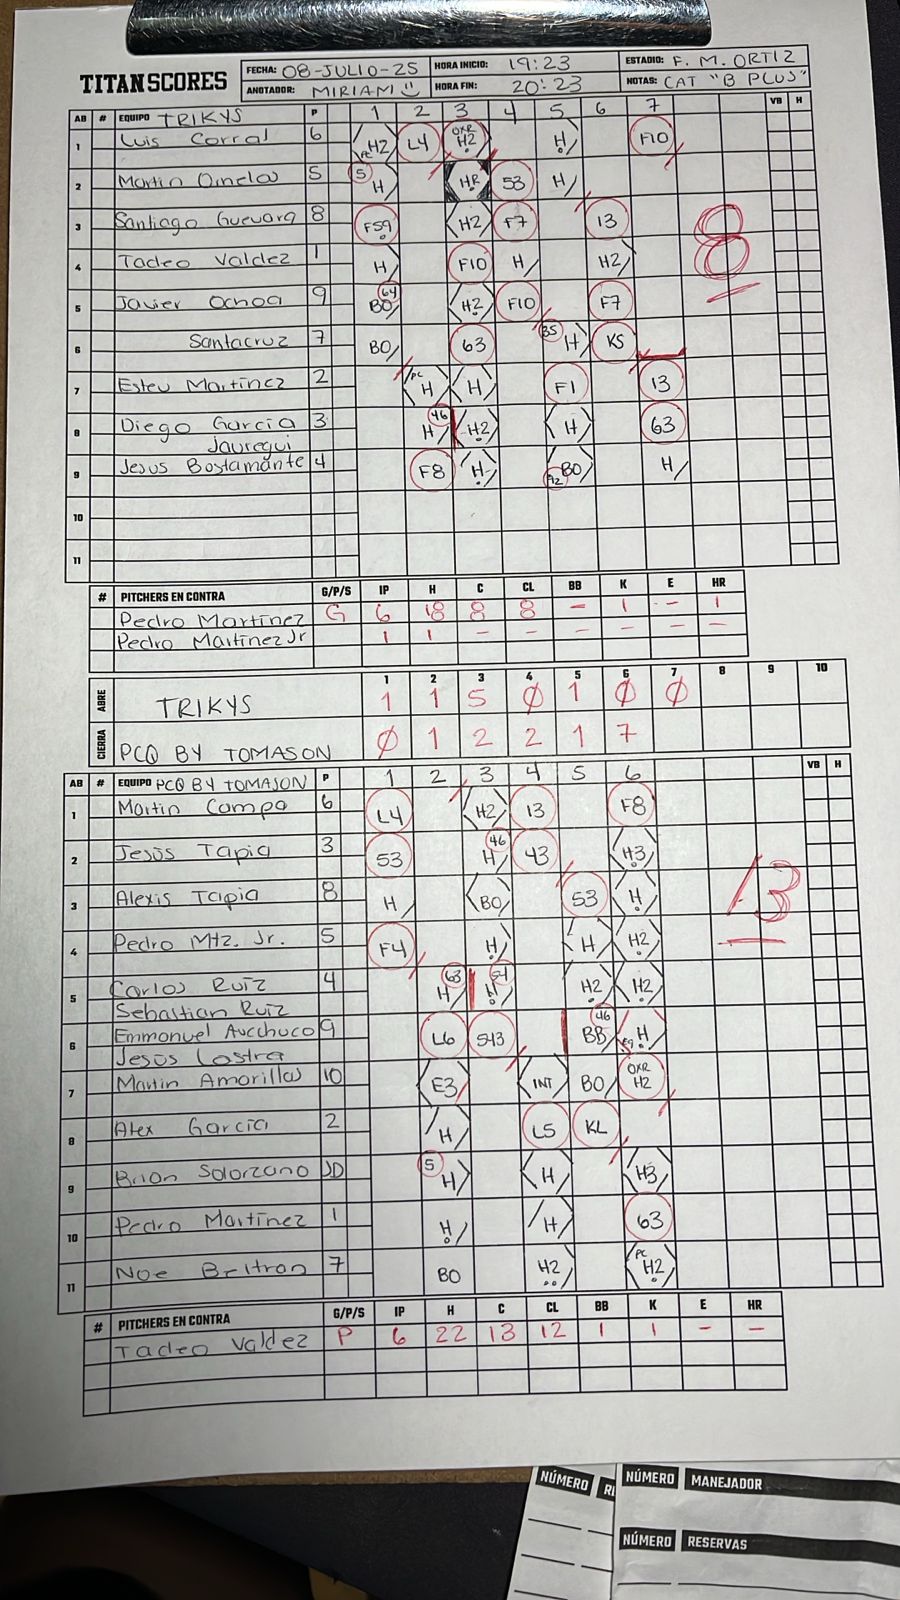 TITANSCORES
FECHA: 08-JULIO-25 HORA INICIO: 19:23 ESTADIO: F. M. ORTIZ
ANOTADOR: MIRIAM HORA FIN: 20:23 NOTAS: CAT "B PLUS"
AB # EQUIPO TRIKYS P 1 2 3 4 5 6 7 VB H
1 Luis Corral 6 PC H2 L4 OXR H2 H F10
2 Martin Ornelas 5 5 H HR 53 H
3 Santiago Guevara 8 F59 H2 F7 13
4 Tadeo Valdez 1 H F10 H H2
5 Javier Ochoa 9 BO 64 H2 F10 F7
6 Santacruz 7 BO 63 35 H KS
7 Esteu Martinez 2 PC H H F1 13
8 Diego Garcia 3 H 46 H2 H 63
Jauregui
9 Jesus Bostamante 4 F8 H BO H
10
11
8
# PITCHERS EN CONTRA G/P/S IP H C CL BB K E HR
Pedro Martinez G 6 18 8 8 - 1 - 1
Pedro Martinez Jr 1 1 - - - - - -
1 2 3 4 5 6 7 8 9 10
ABRE TRIKYS 1 1 5 Ø 1 Ø Ø
CIERRA PCQ BY TOMASON Ø 1 2 2 1 7
AB # EQUIPO PCQ BY TOMASON P 1 2 3 4 5 6 VB H
1 Martin Campa 6 L4 H2 13 F8
2 Jesus Tapia 3 53 H 46 43 H3
3 Alexis Tapia 8 H BO 53 H
4 Pedro Mtz. Jr. 5 F4 H H H2
5 Carlos Ruiz 4 H 63 H 54 H2 H2
Sebastian Ruiz
6 Emmanuel Aucchuco 9 L6 543 BB 46 H
Jesus Lostra
7 Martin Amarillas 10 E3 INT BO OXR H2
8 Alex Garcia 2 H L5 KL
9 Brian Solorzano JD 5 H H H3
10 Pedro Martinez 1 H H 63
11 Noe Beltran 7 BO H2 PC H2
13
# PITCHERS EN CONTRA G/P/S IP H C CL BB K E HR
Tadeo Valdez P 6 22 13 12 1 1 - -
NÚMERO
NÚMERO MANEJADOR
NÚMERO RESERVAS